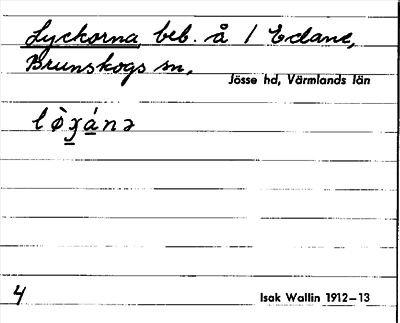 Lyckorna, beb. å / Edane,
Brunskogs sn,
Jösse hd, Värmlands län
lò̱ʒ̱á̱nə
4
Isak Wallin 1912–13